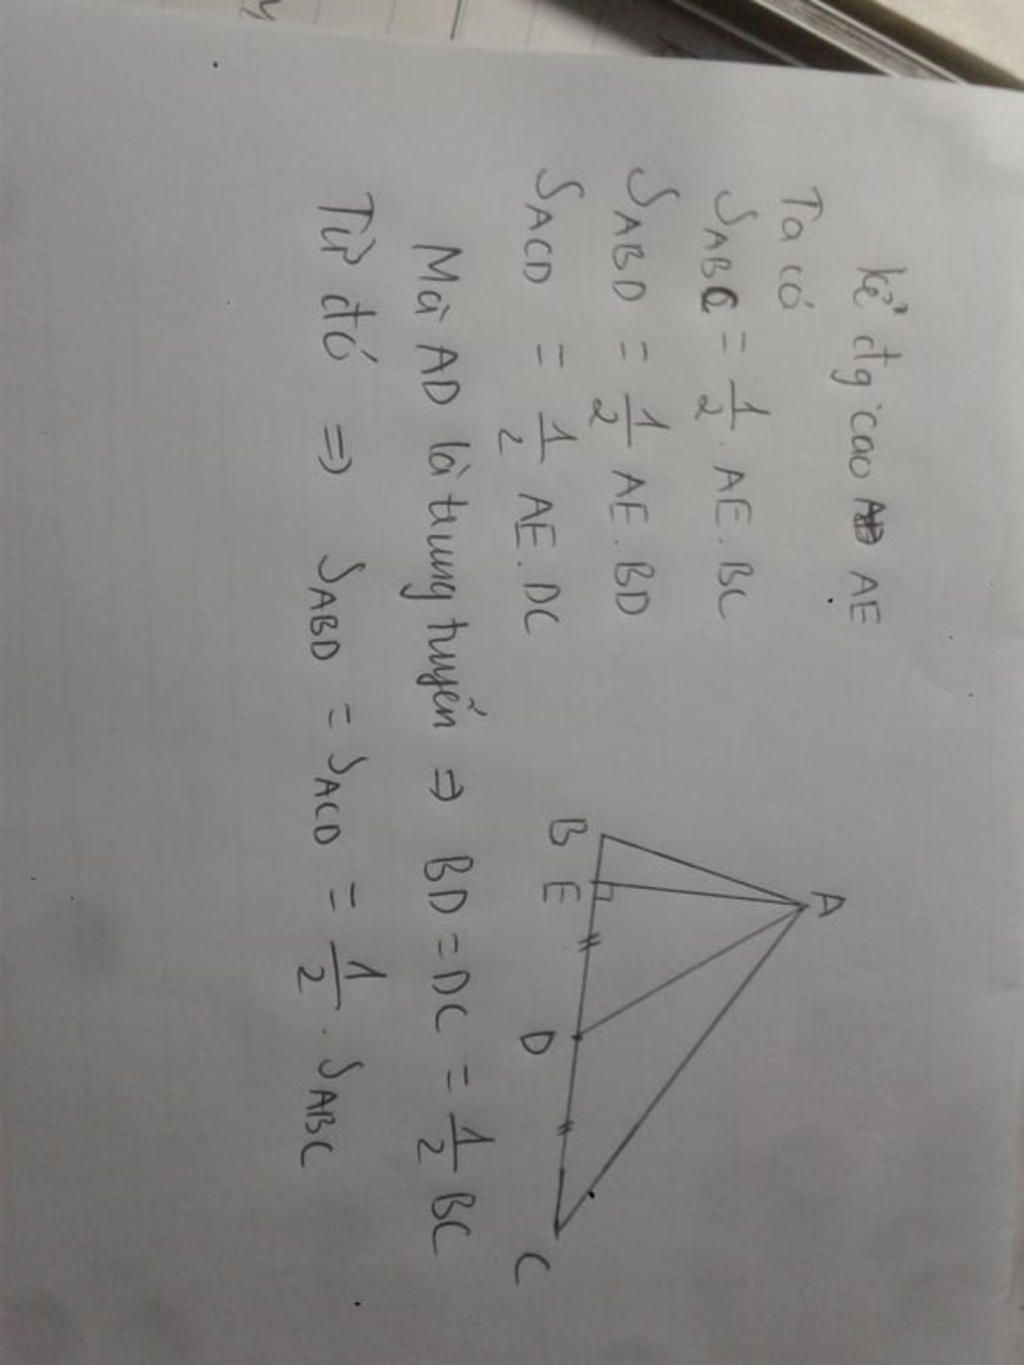 kẻ đg cao AE
Ta có
S_ABC = 1/2 . AE . BC
S_ABD = 1/2 AE . BD
S_ACD = 1/2 AE . DC
Mà AD là trung tuyến ⇒ BD = DC = 1/2 BC
Từ đó ⇒ S_ABD = S_ACD = 1/2 . S_ABC
A
B
E
D
C